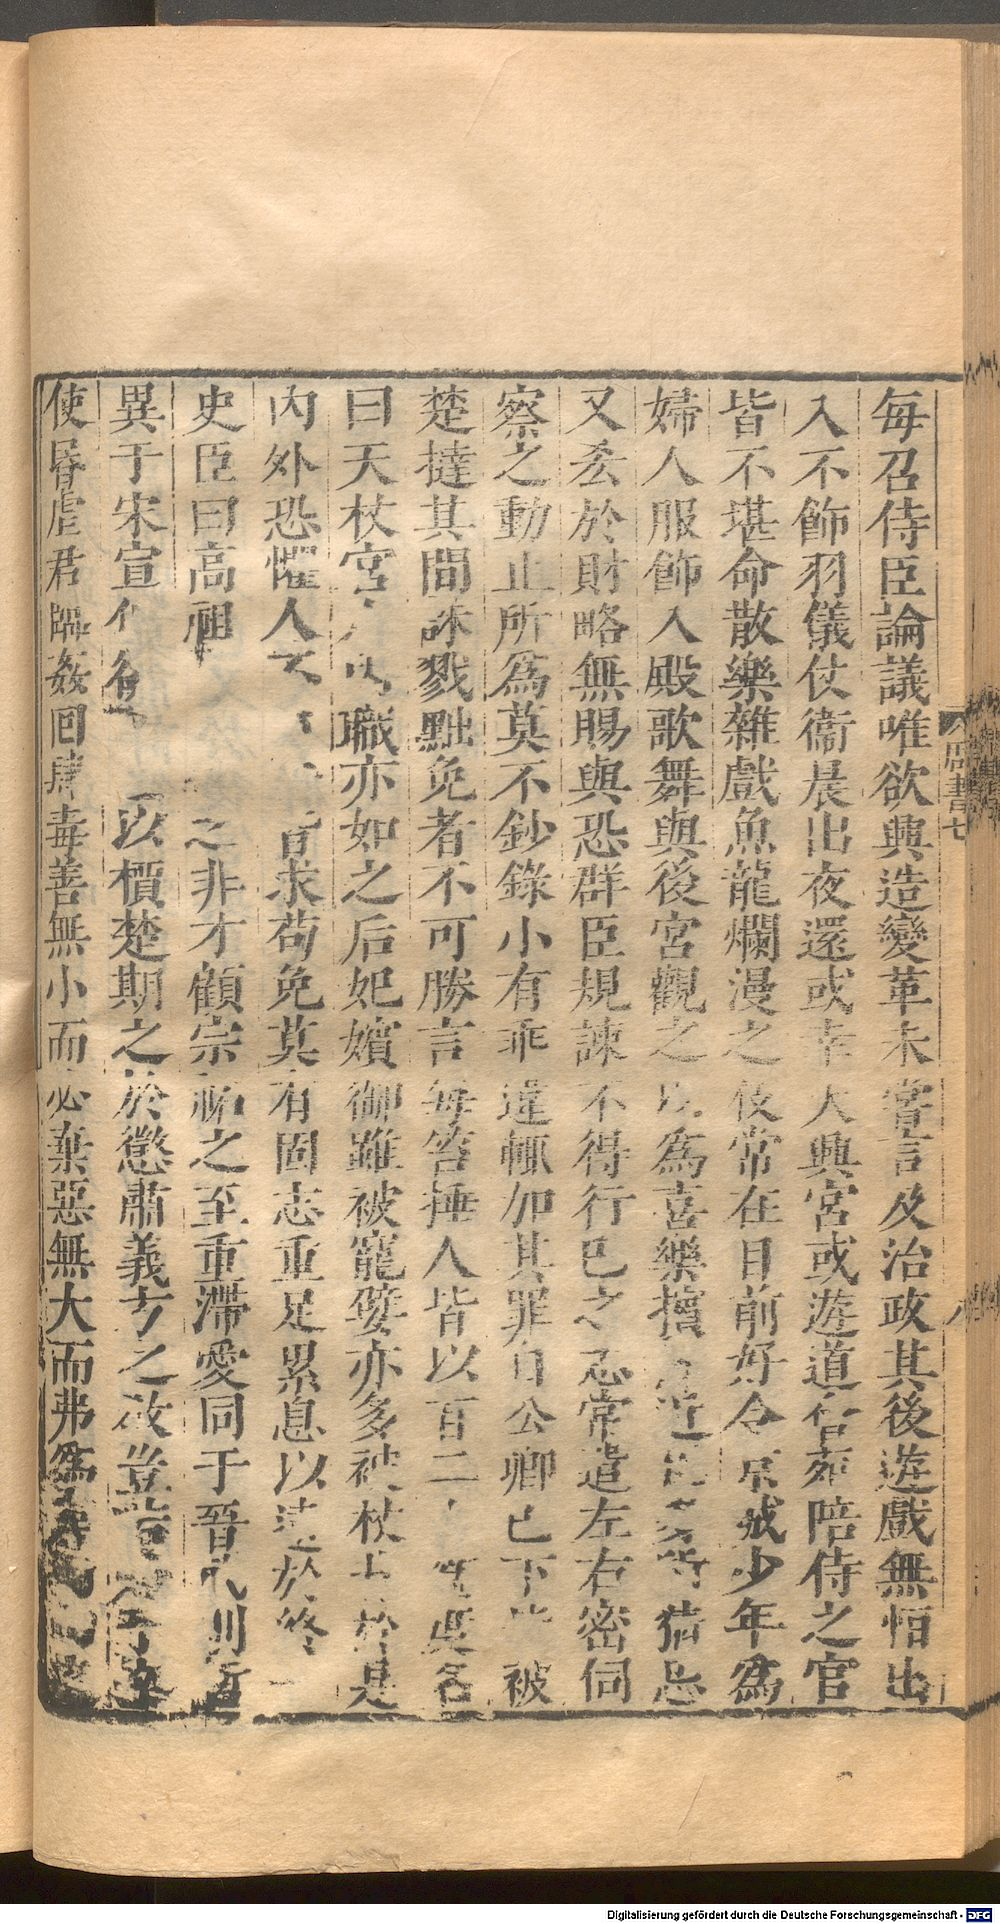 每召侍臣論議唯欲興造變革未嘗言及治政其後遊戲無恒出
入不飾羽儀仗衞晨出夜還或幸天興宮或遊道㑹苑陪侍之官
皆不堪命散樂雜戲魚龍爛漫之伎常在目前好令京城少年爲
婦人服飾入殿歌舞與後宮觀之以爲喜樂擯近猜忌
又𠫤於財略無賜與恐群臣規諫不得行己之志常遣左右密伺
察之動止所爲莫不鈔錄小有乖違輒加其罪自公卿已下皆被
楚撻其間誅戮黜免者不可勝言每笞捶人皆以百二十爲度名
曰天杖宮人內職亦如之后妃嬪御雖被寵嬖亦多被杖背於是
內外恐懼人不 皆求苟免莫有固志重足累息以逮於終
史臣曰高祖 之非才顧宗祏之至重滯愛同于晉武則哲
異于宋宣 以檟楚期之於懲肅義方之敎豈
使昬虐君臨姦回肆毒善無小而必棄惡無大而弗爲
周書七
八
Digitalisierung gefördert durch die Deutsche Forschungsgemeinschaft - DFG